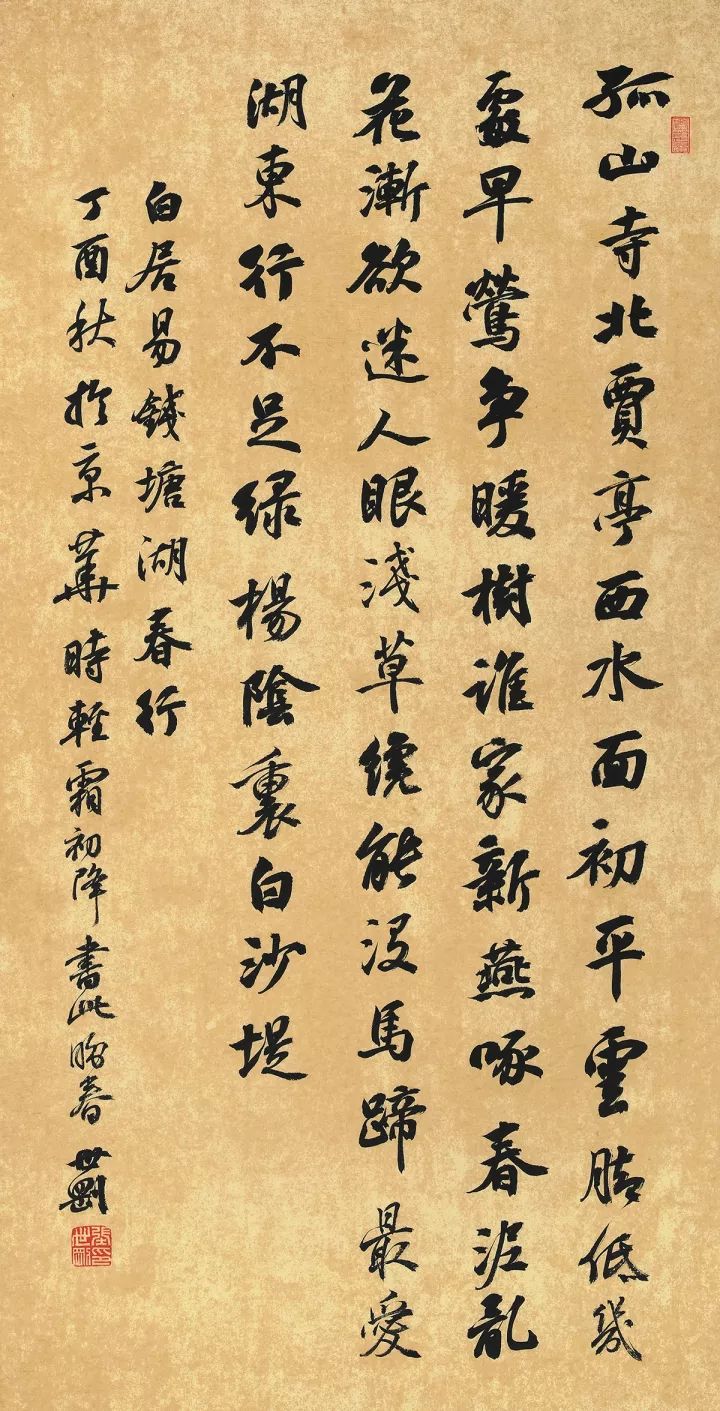 孤山寺北賈亭西水面初平雲腳低幾
處早鶯争暖樹誰家新燕啄春泥亂
花漸欲迷人眼淺草纔能没馬蹄最愛
湖東行不足绿楊陰裏白沙堤
白居易錢塘湖春行
丁酉秋於京華時輕霜初降書此盼春世剛